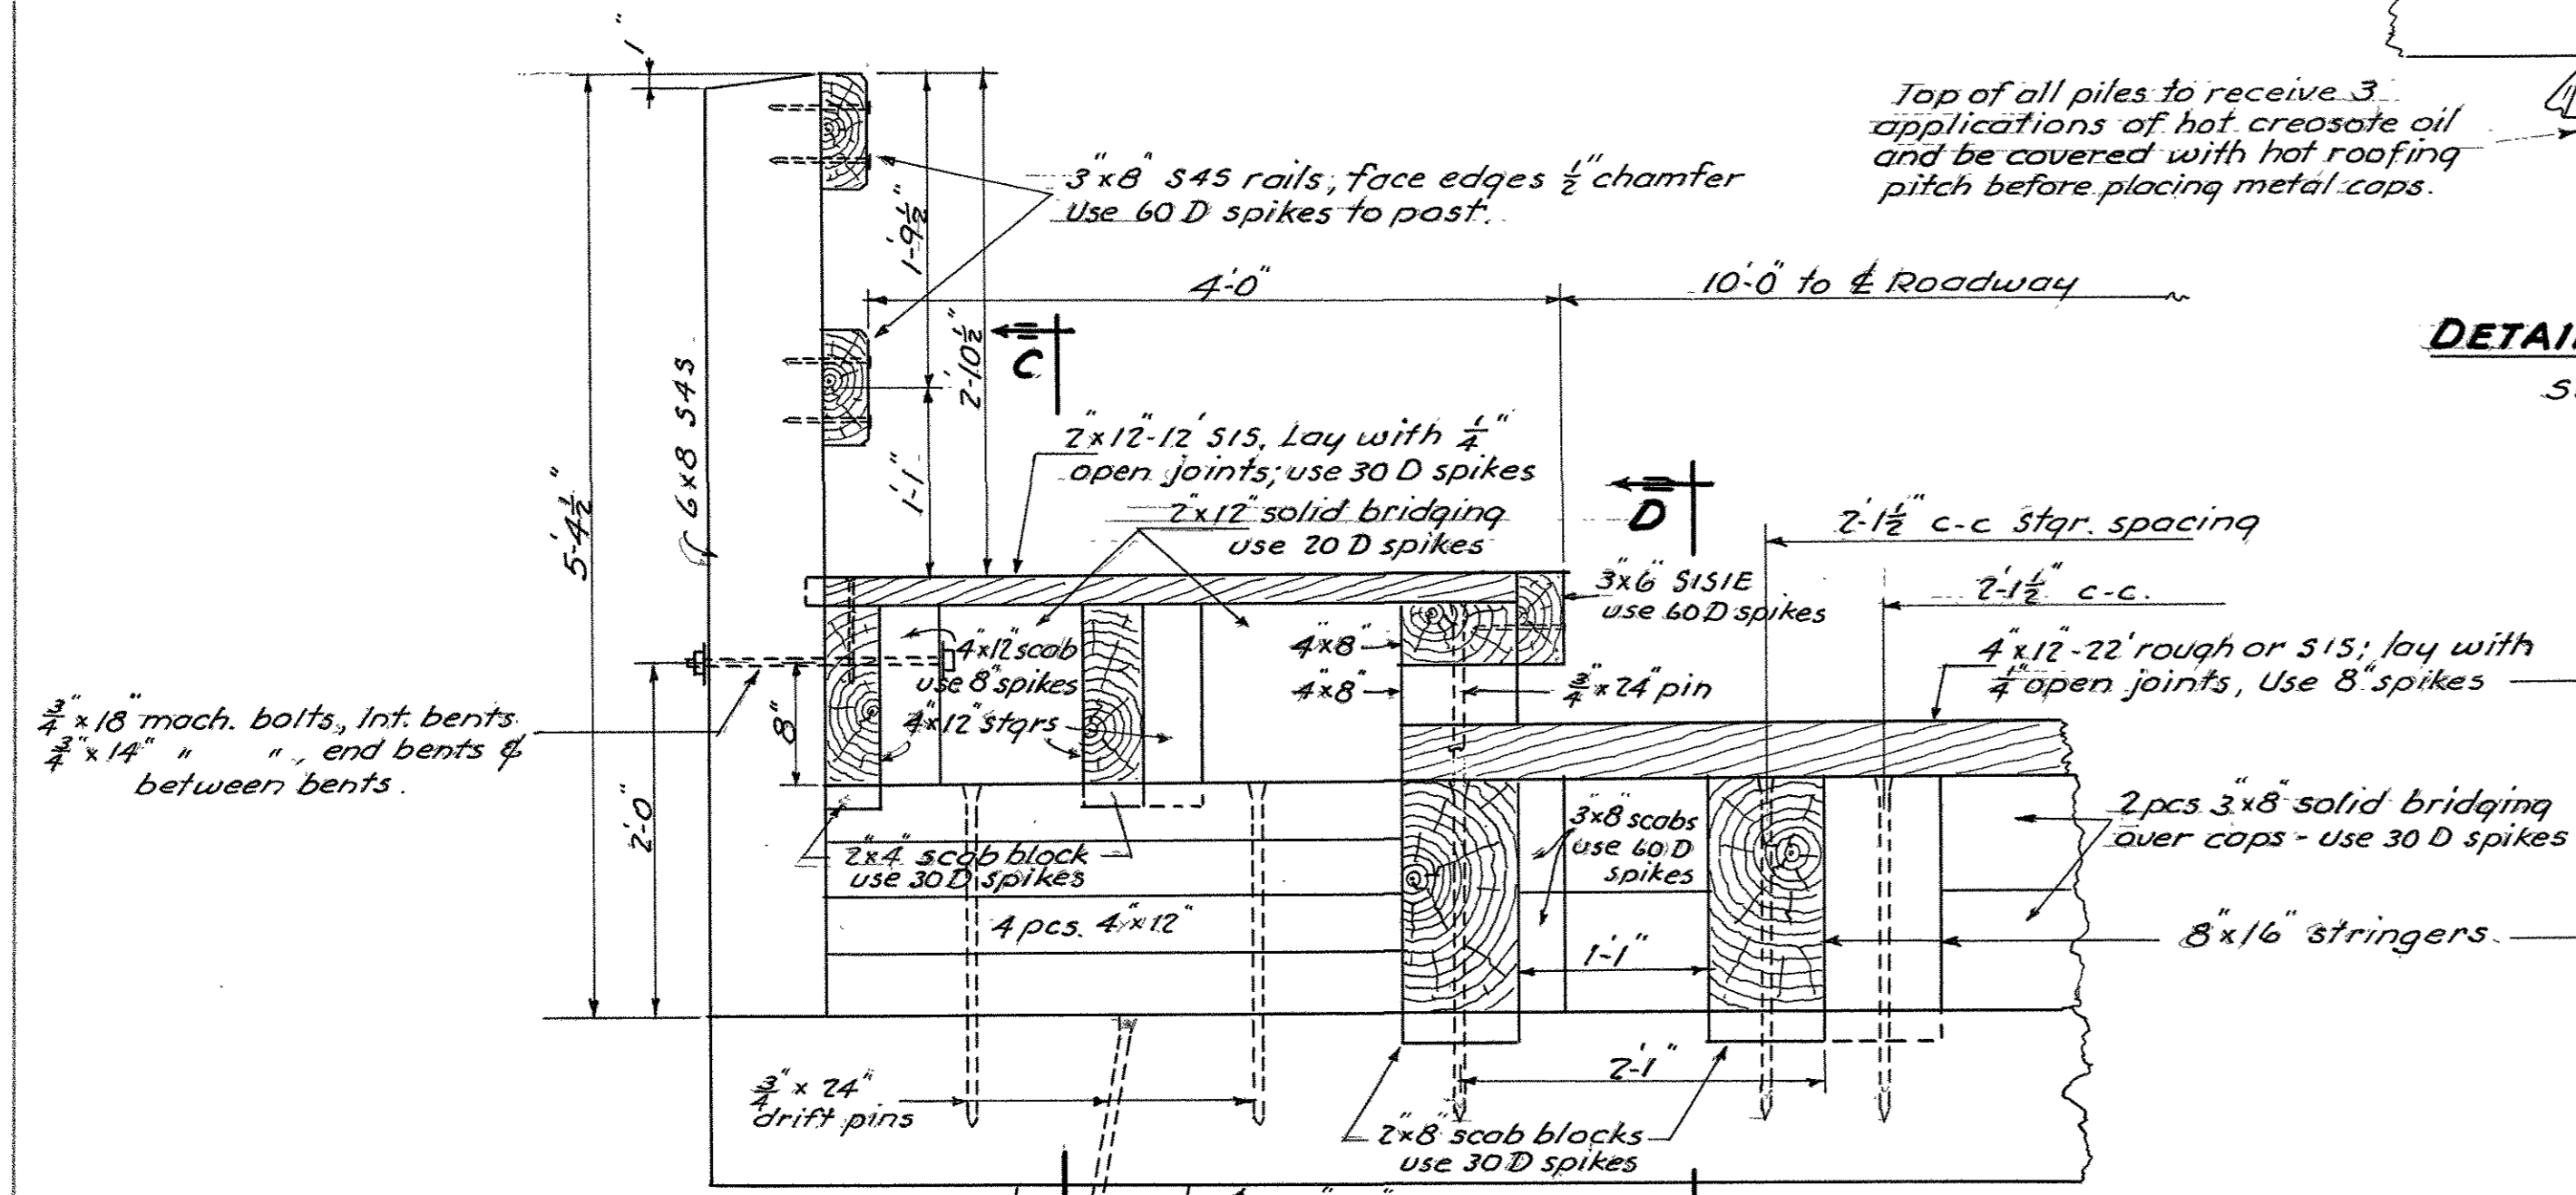 1"
Top of all piles to receive 3
applications of hot creosote oil
and be covered with hot roofing
pitch before placing metal caps.
3"x8" S4S rails; face edges ½" chamfer
Use 60 D spikes to post.
1'-9½"
2'-10½"
4'-0"
10'-0" to ℄ Roadway
C
DETAI
6x8 S4S
5'-4½"
1'-1"
2"x12"-12' S1S. Lay with ¼"
open joints; use 30 D spikes
2"x12" solid bridging
use 20 D spikes
D
2'-1½" c-c Stgr. spacing
2'-1½" c-c.
3"x6" S1S1E
use 60 D spikes
4"x12" scab
use 8" spikes
4"x8"
4"x8"
¾"x24" pin
4"x12"-22' rough or S1S; lay with
¼" open joints, Use 8" spikes
¾"x18" mach. bolts, Int. bents
¾"x14" " ", end bents &
between bents.
4"x12" stgrs
8"
2'-0"
2"x4" scab block
use 30 D spikes
3"x8" scabs
use 60 D
spikes
2 pcs 3"x8" solid bridging
over caps - use 30 D spikes
4 pcs. 4"x12"
1'-1"
8"x16" stringers.
2'-1"
¾" x 24"
drift pins
2"x8" scab blocks
use 30 D spikes